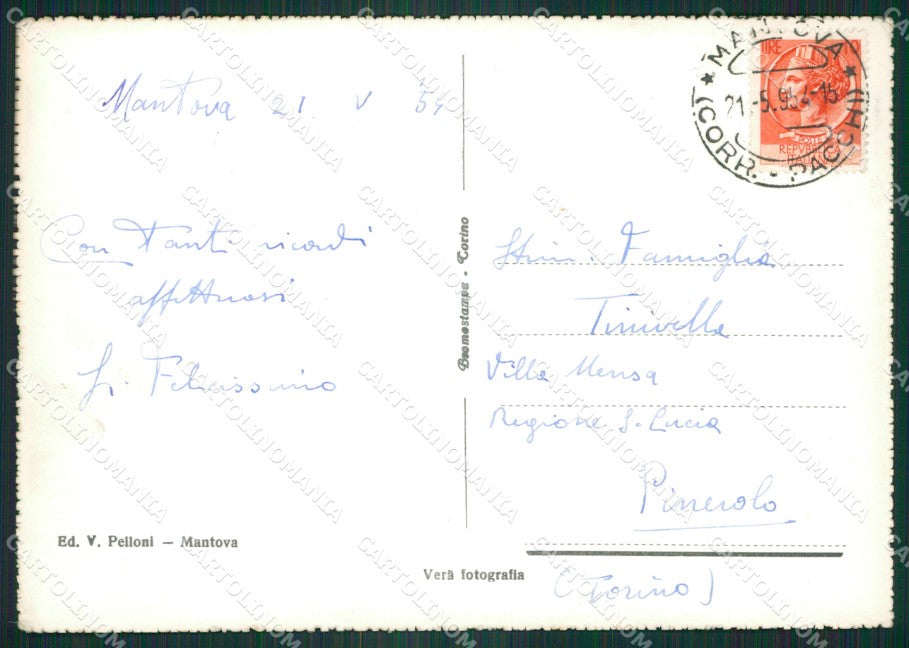 Mantova 21 V 54
Con tanti ricordi
affettuosi
Ed. V. Pelloni — Mantova
Bromostampa - Torino
Vera fotografia
MANTOVA
21.-5.954.-15
(CORR. - PACCHI)
LIRE
POSTE
REPVBBLICA
Stim. Famiglia
Tinivella
Villa Mensa
Regione S. Lucia
Pinerolo
(Torino)
CARTOLINOMANIA